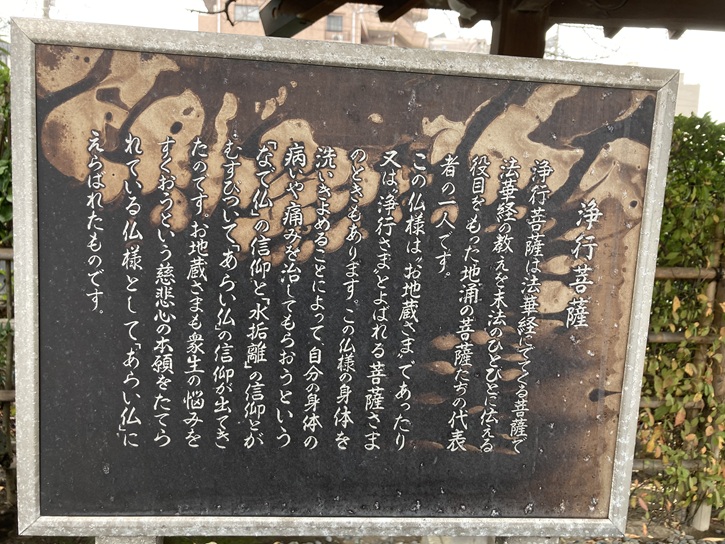 浄行菩薩
浄行菩薩は法華経にでてくる菩薩で
法華経の教えを末法のひとびとに伝える
役目をもった地涌の菩薩たちの代表
者の一人です。
この仏様は"お地蔵さま"であったり
又は"浄行さま"とよばれる菩薩さま
のときもあります。この仏様の身体を
洗いきよめることによって自分の身体の
病いや痛みを治してもらおうという
「なで仏」の信仰と「水垢離」の信仰とが
むすびついて「あらい仏」の信仰が出てき
たのです。お地蔵さまも衆生の悩みを
すくおうという慈悲心の本願をたてら
れている仏様として「あらい仏」に
えらばれたものです。